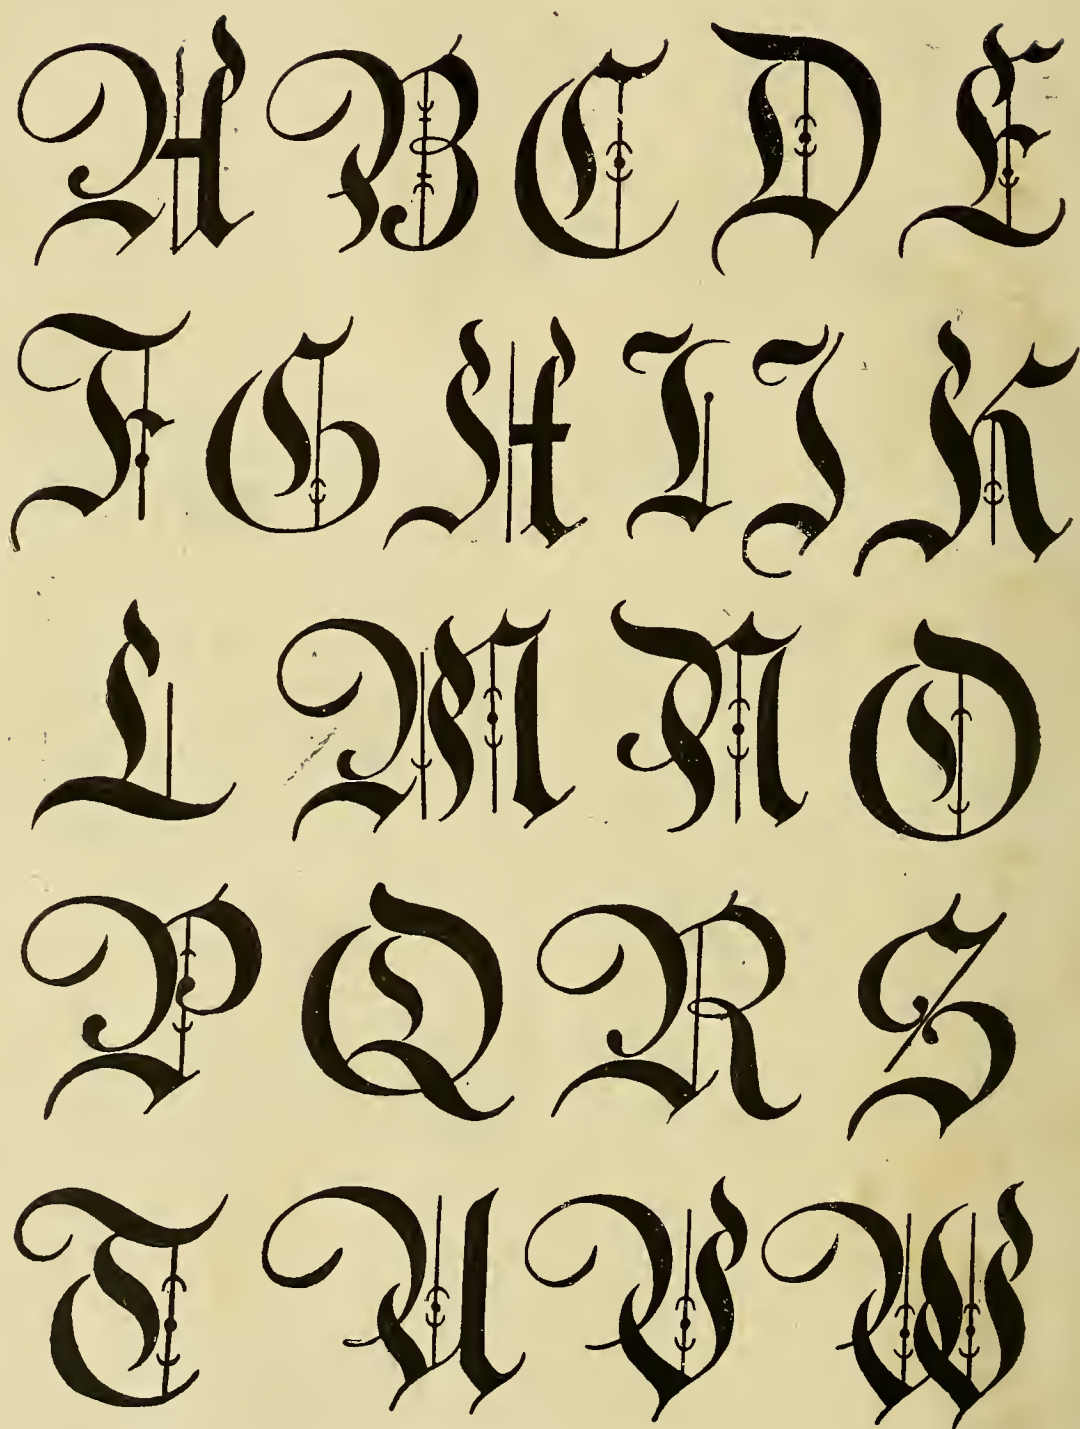 A B C D E
F G H I J K
L M N O
P Q R S
T U V W